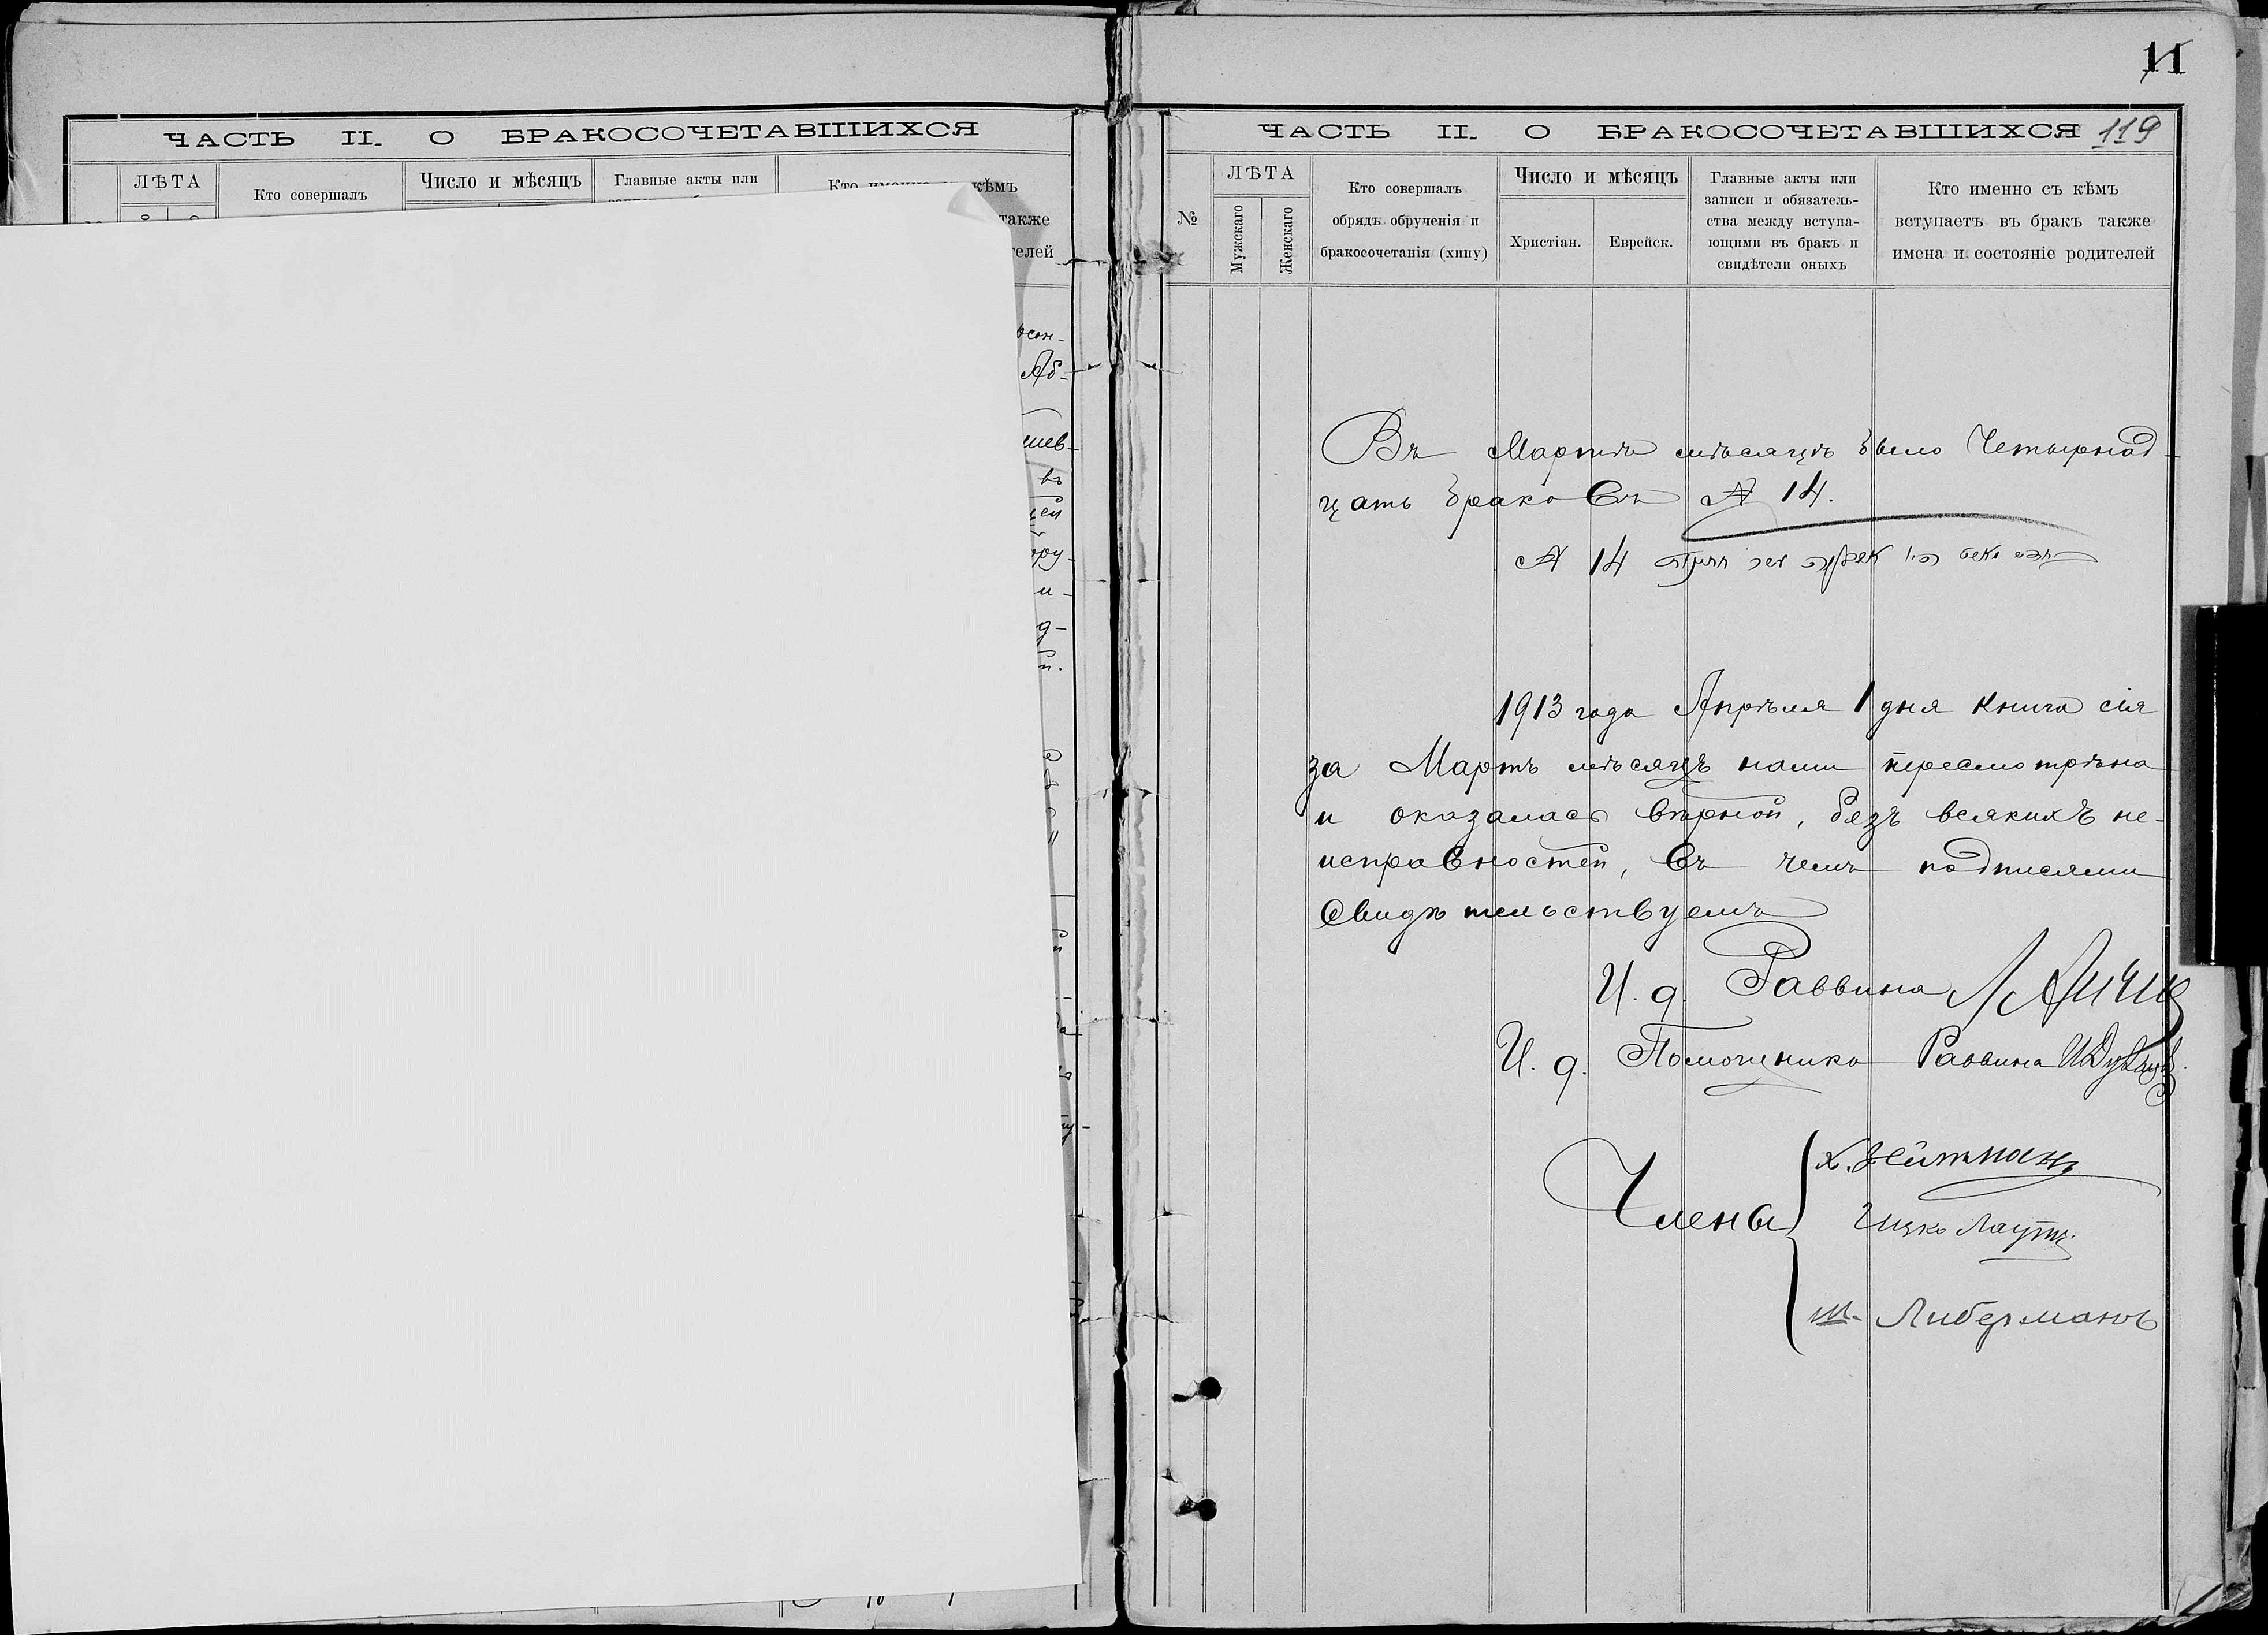 ЧАСТЬ II. О БРАКОСОЧЕТАВШИХСЯ
ЛѢТА
Кто совершалъ
Число и мѣсяцъ
Главные акты или
кѣмъ
также
телей
11
ЧАСТЬ II. О БРАКОСОЧЕТАВШИХСЯ 119
№
ЛѢТА
Мужскаго
Женскаго
Кто совершалъ
обрядъ обрученія и
бракосочетанія (хипу)
Число и мѣсяцъ
Христіан.
Еврейск.
Главные акты или
записи и обязатель-
ства между вступа-
ющими въ бракъ и
свидѣтели оныхъ
Кто именно съ кѣмъ
вступаетъ въ бракъ также
имена и состояніе родителей
Въ Мартѣ мѣсяцѣ было Четырнад-
цать браковъ № 14.
№ 14
1913 года Апрѣля 1 дня книга сія
за Мартъ мѣсяцъ нами пересмотрѣна
и оказалась вѣрной, безъ всякихъ не-
исправностей, въ чемъ подписями
свидѣтельствуемъ
И. д. Раввина
И. д. Помощника Раввина
Члены
Х. Вейтманъ
Ицко Лаутъ
Ш. Либерманъ